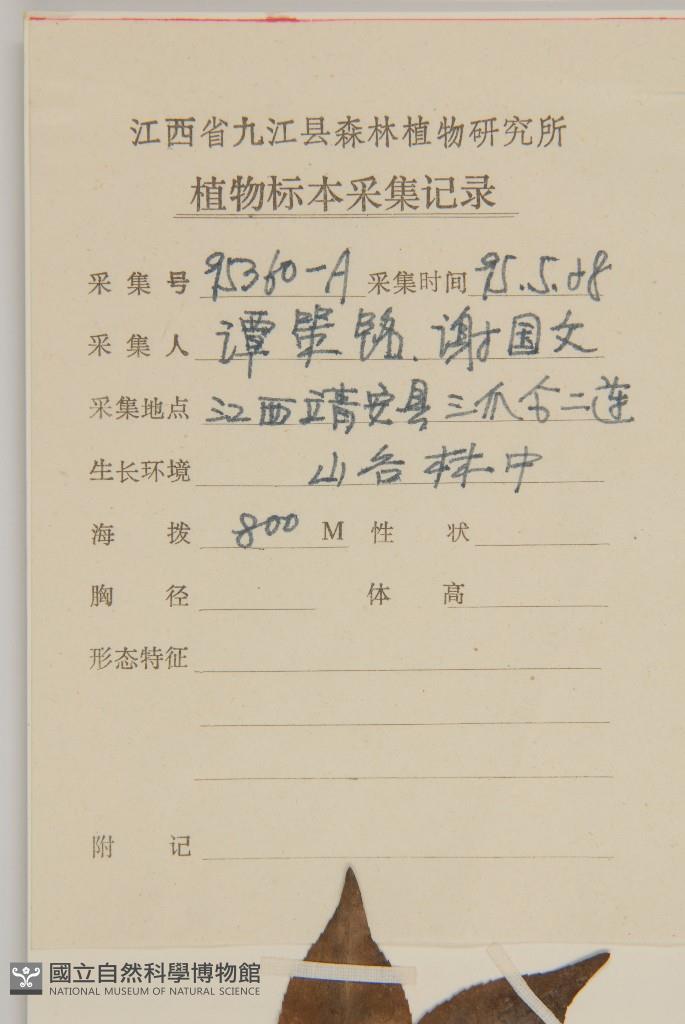 江西省九江县森林植物研究所
植物标本采集记录
采集号 95360-A 采集时间 95.5.18
采集人 谭策铭、谢国文
采集地点 江西靖安县三爪仑二莲
生长环境 山谷林中
海拨 800 M 性状
胸径 体高
形态特征
附记
國立自然科學博物館
NATIONAL MUSEUM OF NATURAL SCIENCE